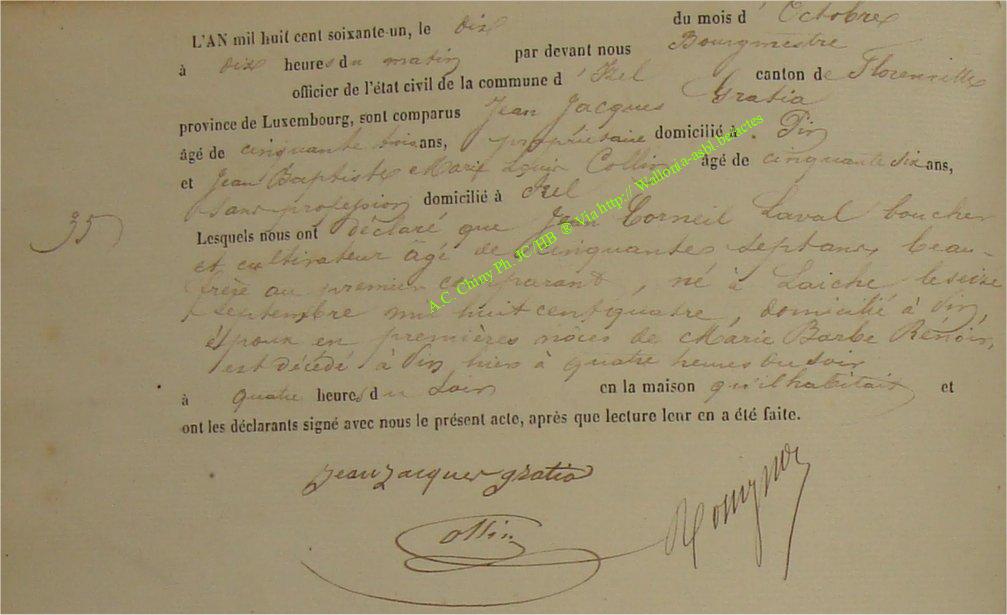 L'AN mil huit cent soixante-un, le dix du mois d' Octobre
à dix heures du matin par devant nous Bourgmestre
officier de l'état civil de la commune d' Izel canton de Florenville
province de Luxembourg, sont comparus Jean Jacques Gratia
âgé de cinquante trois ans, propriétaire domicilié à Pin
et Jean Baptiste Marie Louis Collin âgé de cinquante six ans,
sans profession domicilié à Izel
35
Lesquels nous ont déclaré que Jean Corneil Laval boucher
et cultivateur âgé de cinquante septans, beau-
frère au premier comparant, né à Laiche le seize
septembre mil huit cent quatre, domicilié à Pin,
époux en premières noces de Marie Barbe Renoir,
est décédé à Pin hier à quatre heures du soir
à quatre heures du soir en la maison qu'il habitait et
ont les déclarants signé avec nous le présent acte, après que lecture leur en a été faite.
Jean Jacques gratia
Collin
A.C. Chiny Ph. JC/HB ® Via http:// Wallonia-asbl.be/actes